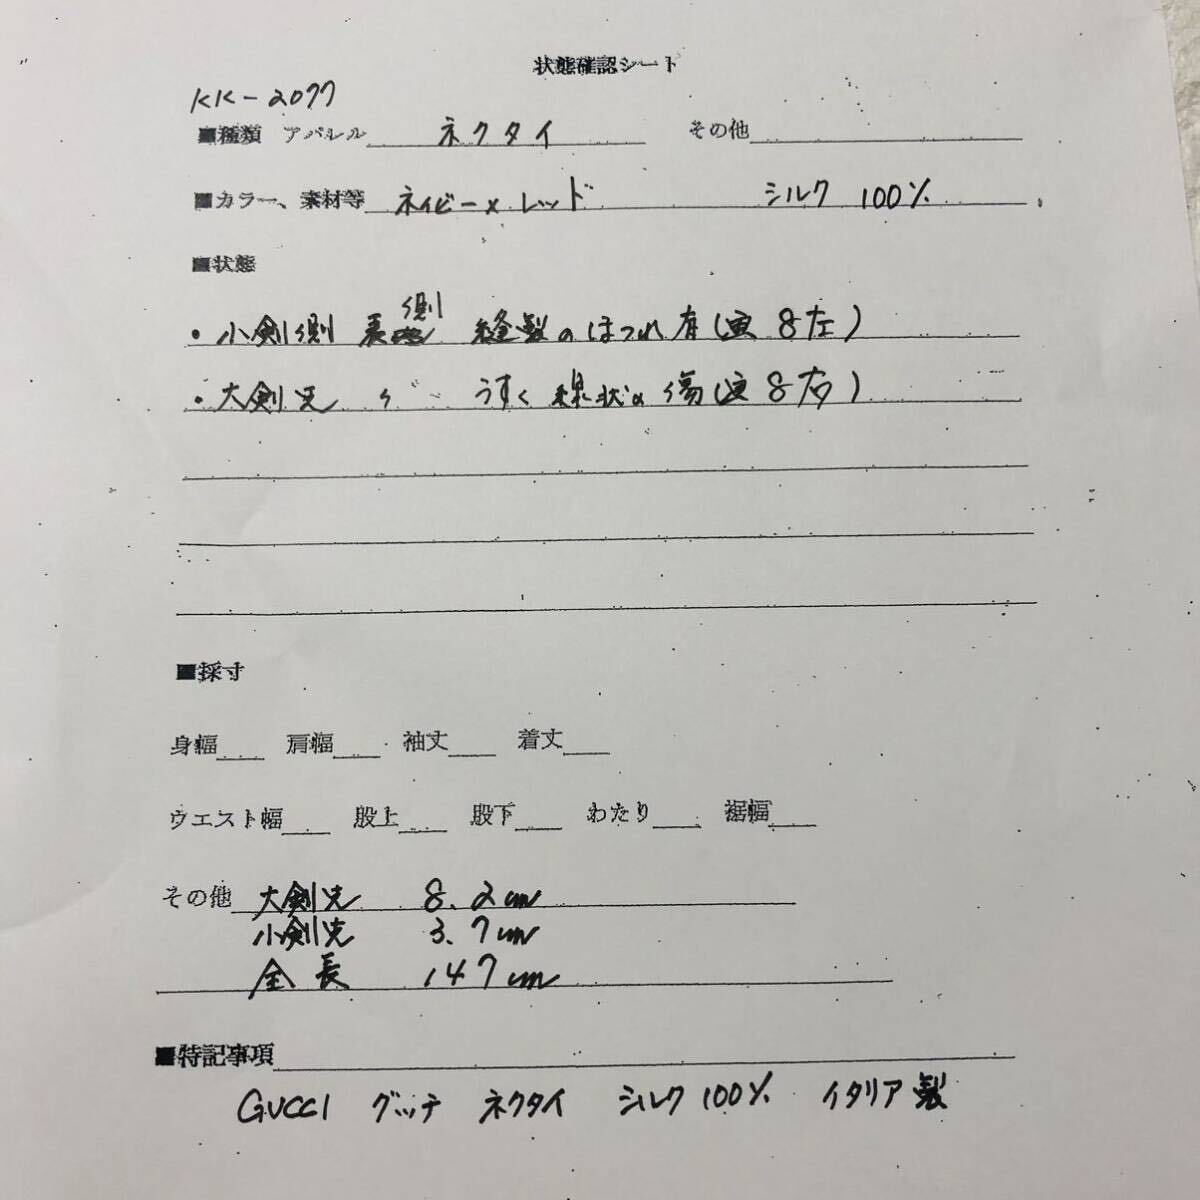 状態確認シート
KK-2077
■種類 アパレル ネクタイ その他
■カラー、素材等 ネイビー×レッド シルク 100%
■状態
・小剣側 裏側 縫製のほつれ有(写8左)
・大剣先 〃 うすく線状の傷(写8右)
■採寸
身幅 肩幅 袖丈 着丈
ウエスト幅 股上 股下 わたり 裾幅
その他 大剣先 8.2cm
小剣先 3.7cm
全長 147cm
■特記事項
GUCCI グッチ ネクタイ シルク100% イタリア製